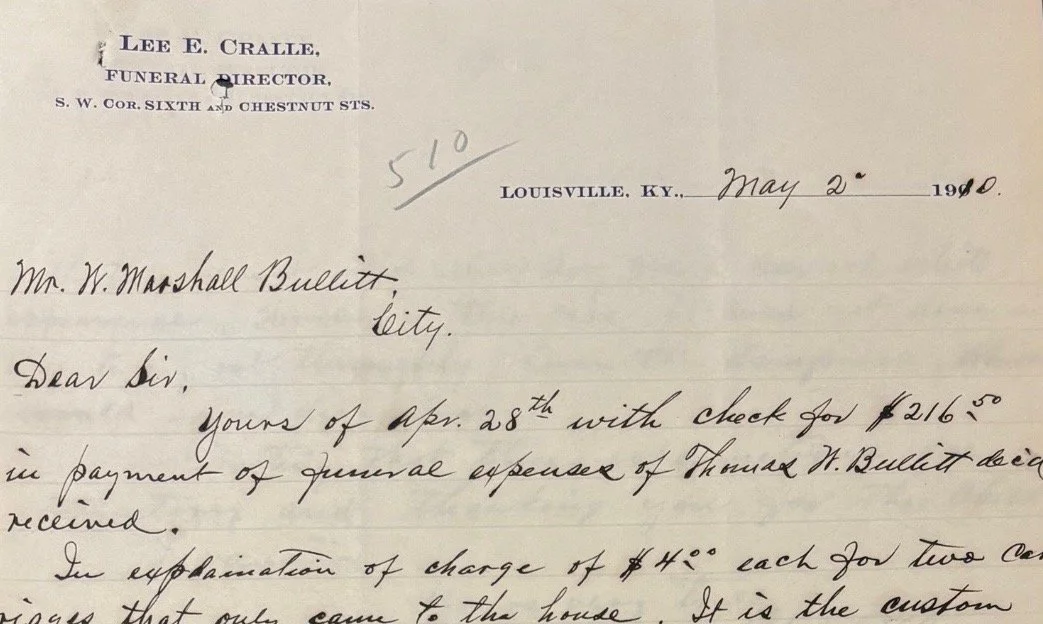 LEE E. CRALLE,
FUNERAL DIRECTOR,
S. W. COR. SIXTH AND CHESTNUT STS.
510
LOUISVILLE, KY., May 2" 1910.
Mr. W. Marshall Bullitt,
City.
Dear Sir,
Yours of Apr. 28th with check for $216.50
in payment of funeral expenses of Thomas W. Bullitt dec'd
received.
In explaination of charge of $4.00 each for two car
riages that only came to the house. It is the custom